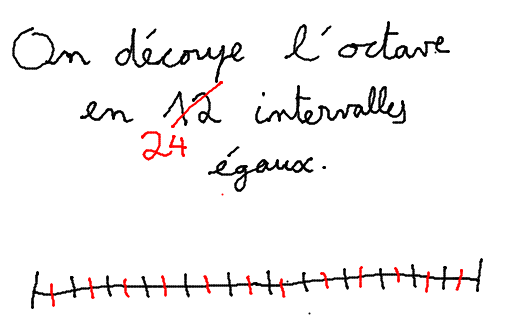 On découpe l'octave
en 12 intervalles
24
égaux.